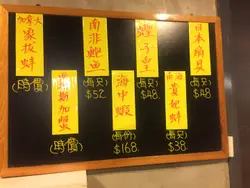 加拿大
象拔蚌
(時價)
阿拉
斯加蟹
(時價)
南非鮑魚
(每只)
$52
海中蝦
(每份)
$168
蟶子皇
(每只)
$48
貴妃蚌
(每只)
$38
日本扇貝
(每只)
$48